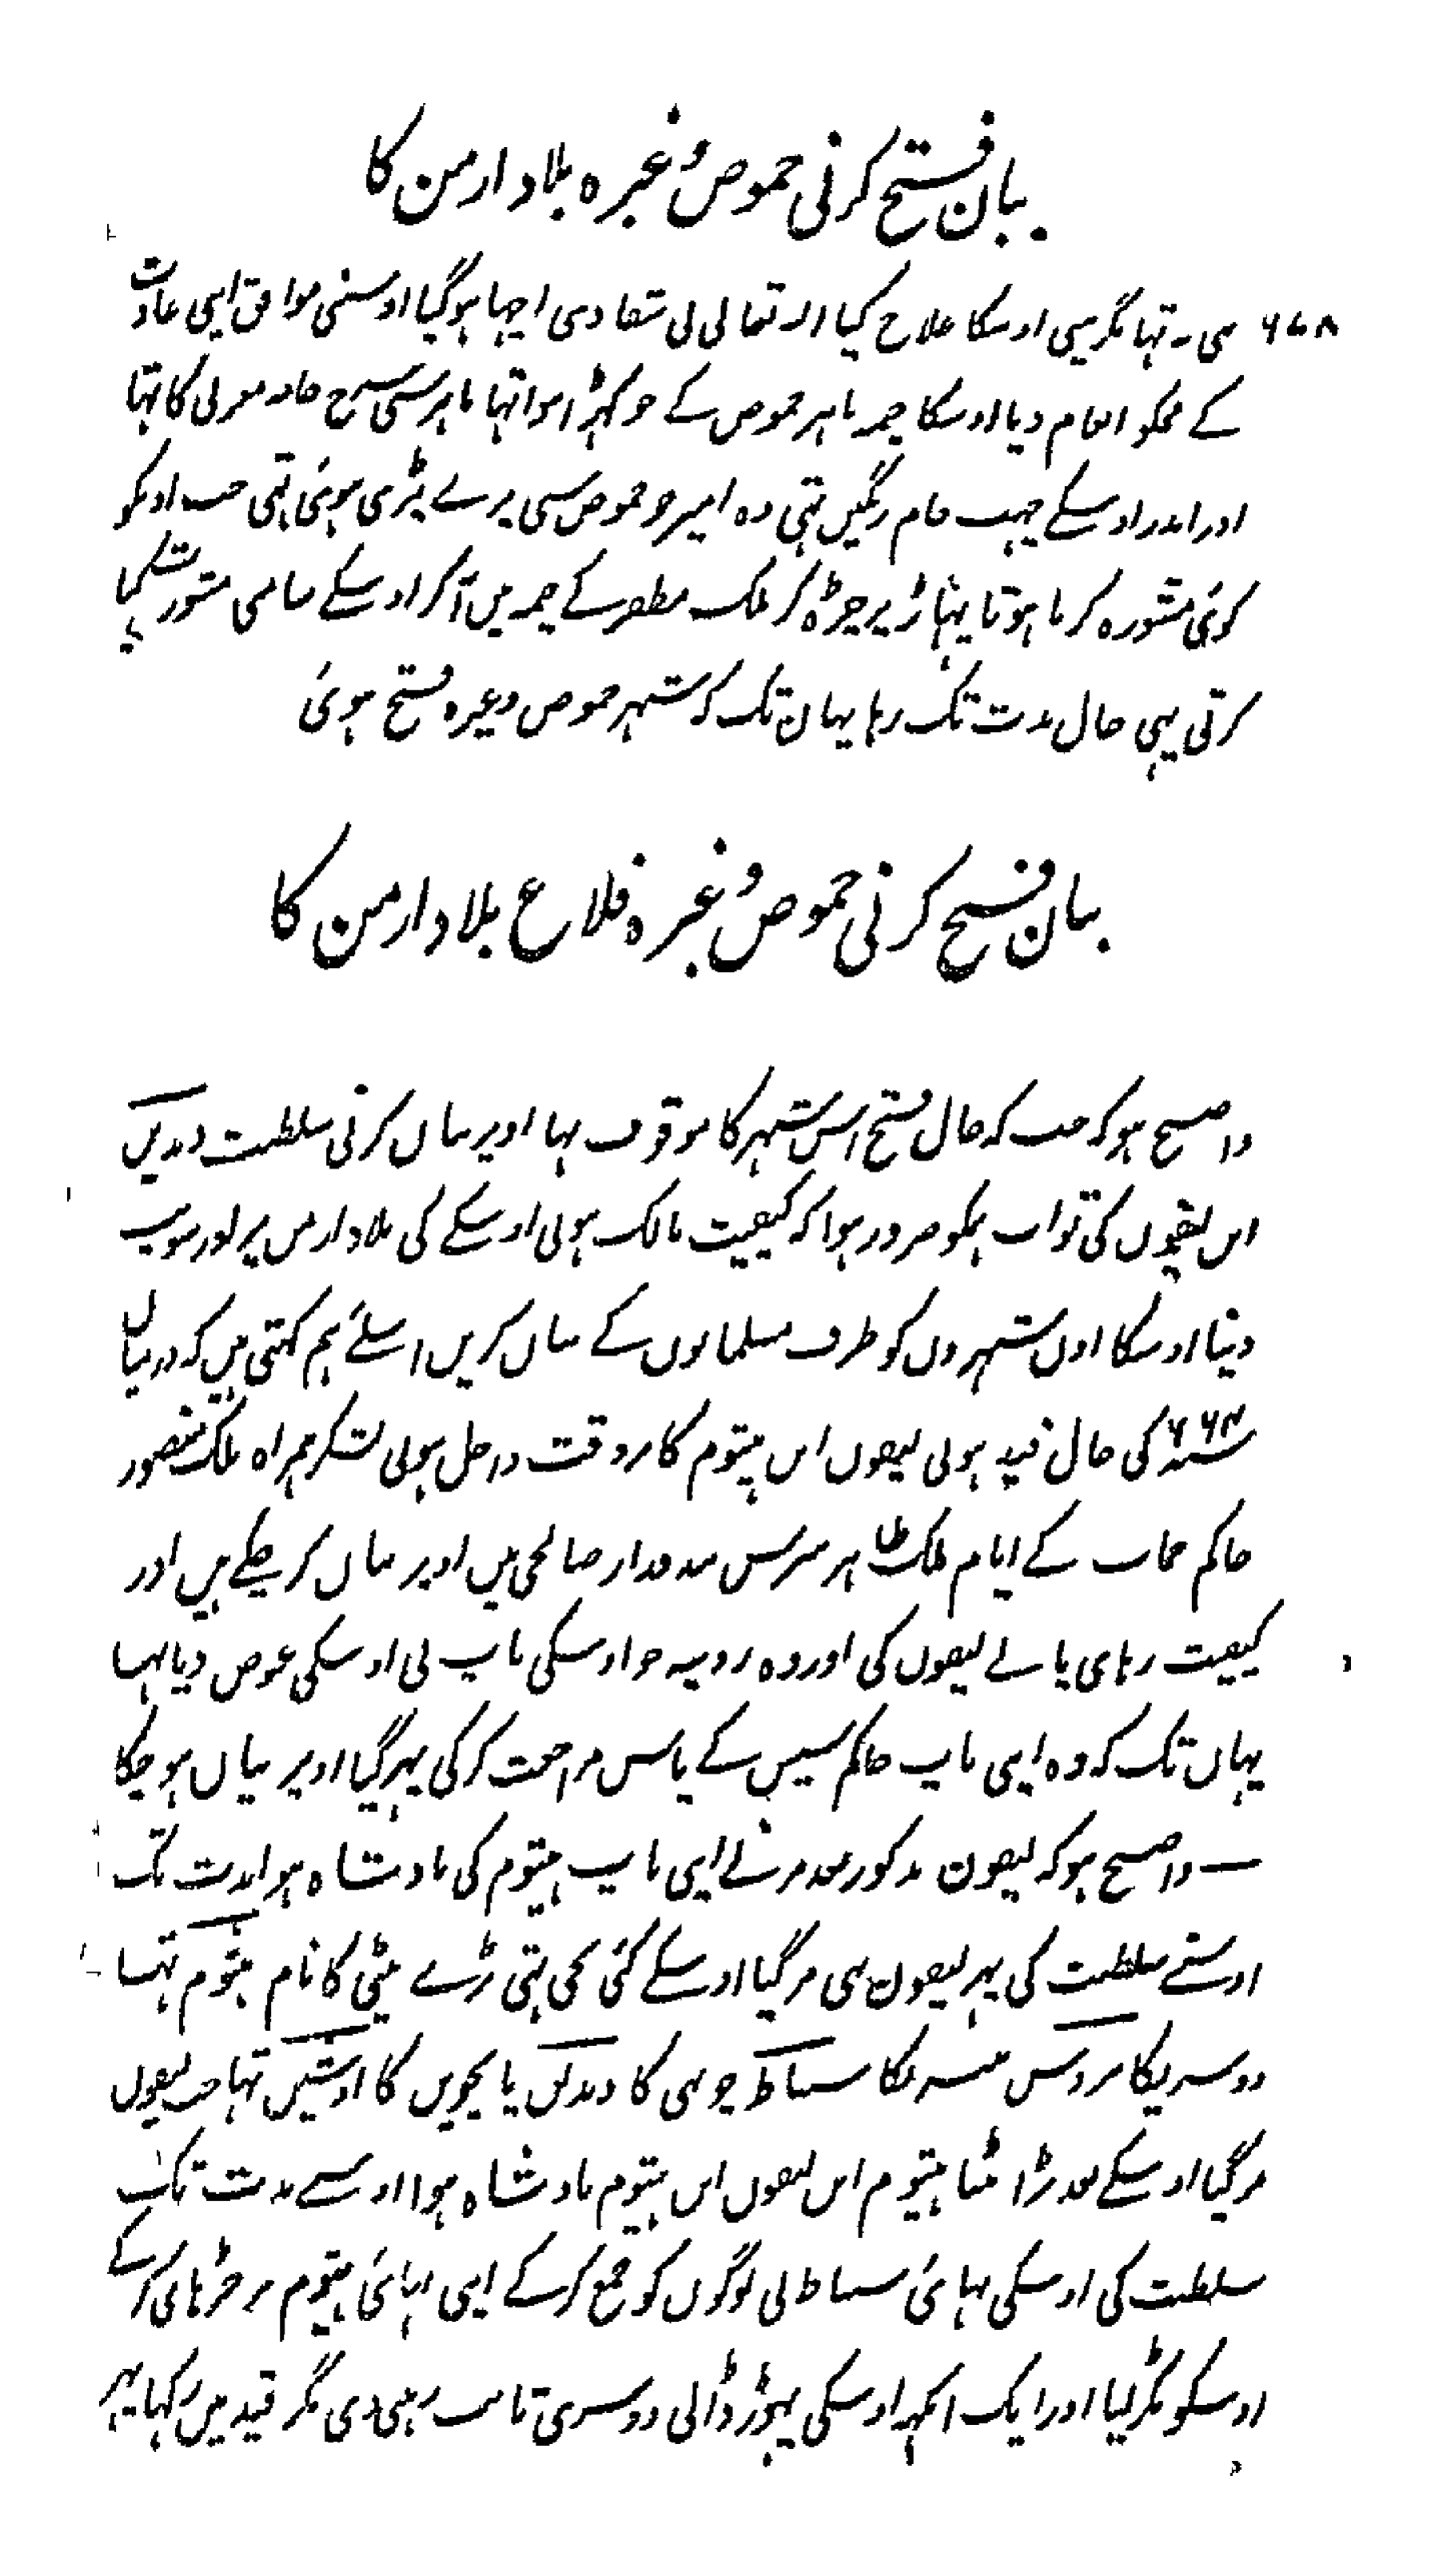 بیان فتح کرنی حموص وغیرہ بلاد ارمن کا
۶۷۸ ہی۔ تہا مگر میں اوسکا علاج کیا اللہ تعالی نی شفا دی اچہا ہوگیا اوسنی موافق اپنی عادت
کے مجکو انعام دیا اوسکا خیمہ باہر حموص کے جو کہڑا ہوا تہا باہرسی سرخ جامہ مغربی کا تہا
اور اندر اوسکے جامہ رنگین تہی وہ امیر جو حموص سی پرے پڑی ہوئی تہی جب اونکو
کوئی مشورہ کرنا ہوتا پہاڑ پر چڑہ کر ملک مظفر کے خیمہ میں آکر اوسکے سامنی مشورت کیا
کرتی یہی حال مدت تک رہا یہان تک کہ شہر حموص وغیرہ فتح ہوئی
بیان فتح کرنی حموص وغیرہ قلاع بلاد ارمن کا
واضح ہو کہ جب کہ حال فتح اس شہر کا موقوف تہا اوپر بیان کرنی سلطنت دندین
ابن لیفون کی تو اب ہمکو ضرور ہوا کہ کیفیت مالک ہونی اوسکے کی بلاد ارمن پر اور سونپ
دینا اوسکا اون شہروں کو طرف مسلمانوں کے بیان کریں اسلئے ہم کہتی ہیں کہ درمیان
سنہ ۶۶۴ کی حال قید ہونی لیفون ابن ہیتوم کا بروقت داخل ہونی لشکر ہمراہ ملک منصور
حاکم حمات کے ایام ملک ظاہر بیبرس بندقدار صالحی میں اوپر بیان کر چکے ہیں اور
کیفیت رہائی پانے لیفون کی اور وہ روپیہ جو اوسکی باپ نی اوسکی عوض دیا تہا
یہاں تک کہ وہ اپنی باپ حاکم سیس کے پاس مراجعت کرکی پہر گیا اوپر بیان ہو چکا
— واضح ہو کہ لیفون مذکور بعد مرنے اپنی باپ ہیتوم کی بادشاہ ہوا مدت تک
اوسنے سلطنت کی پہر لیفون بہی مرگیا اوسکے کئی بچی تہی بڑے بیٹی کا نام ہیتوم تہا
دوسریکا تروس تیسریکا سنباط چوتہی کا دندین پانچویں کا اوشین تہا جب لیفون
مرگیا اوسکے بعد بڑا بیٹا ہیتوم ابن لیفون ابن ہیتوم بادشاہ ہوا اوسے مدت تک
سلطنت کی اوسکی بہائی سنباط نی لوگوں کو جمع کرکے اپنی بہائی ہیتوم پر چڑہائی کرکے
اوسکو پکڑ لیا اور ایک انکہہ اوسکی پہوڑ ڈالی دوسری ثابت رہنی دی مگر قید میں رکہا پہر